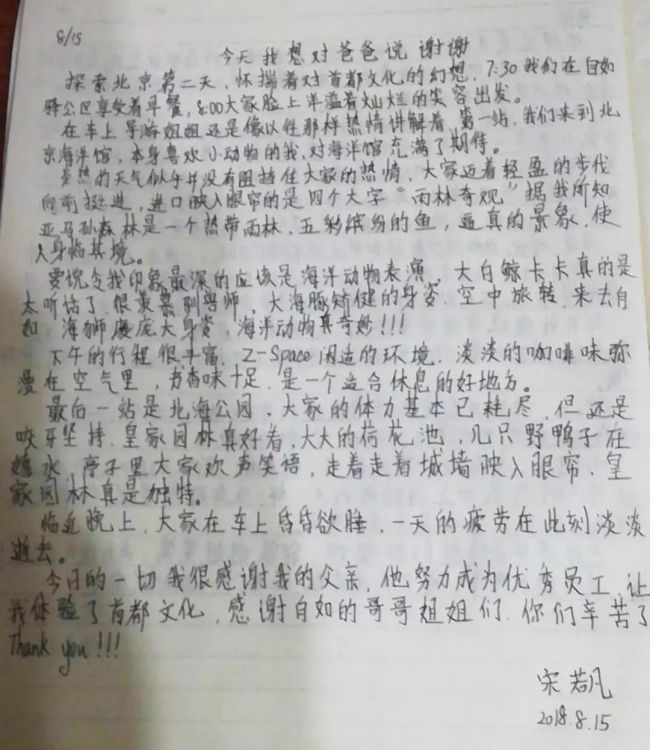 8/15
今天我想对爸爸说 谢谢
探索北京第二天，怀揣着对首都文化的幻想，7:30 我们在自如
驿公区享受着早餐，8:00大家脸上洋溢着灿烂的笑容出发。
在车上导游姐姐还是像以往那样热情讲解着，第一站，我们来到北
京海洋馆，本身喜欢小动物的我，对海洋馆充满了期待。
炎热的天气似乎并没有阻挡住大家的热情，大家迈着轻盈的步伐
向前挺进，进口映入眼帘的是四个大字“雨林奇观”据我所知
亚马孙森林是一个热带雨林，五彩缤纷的鱼，逼真的景象，使
人身临其境。
要说令我印象最深的应该是海洋动物表演，大白鲸卡卡真的是
太听话了，很羡慕驯兽师，大海豚矫健的身姿，空中旋转，来去自
如，海狮庞大身姿，海洋动物真奇妙!!!
下午的行程很丰富，Z-Space闲适的环境，淡淡的咖啡味弥
漫在空气里，书香味十足，是一个适合休息的好地方。
最后一站是北海公园，大家的体力基本已耗尽，但还是
咬牙坚持，皇家园林真好看，大大的荷花池，几只野鸭子在
嬉水，亭子里大家欢声笑语，走着走着城墙映入眼帘，皇
家园林真是独特。
临近晚上，大家在车上昏昏欲睡，一天的疲劳在此刻淡淡
逝去。
今日的一切我很感谢我的父亲，他努力成为优秀员工，让
我体验了首都文化，感谢自如的哥哥姐姐们，你们辛苦了
Thank you!!!
宋若凡
2018.8.15